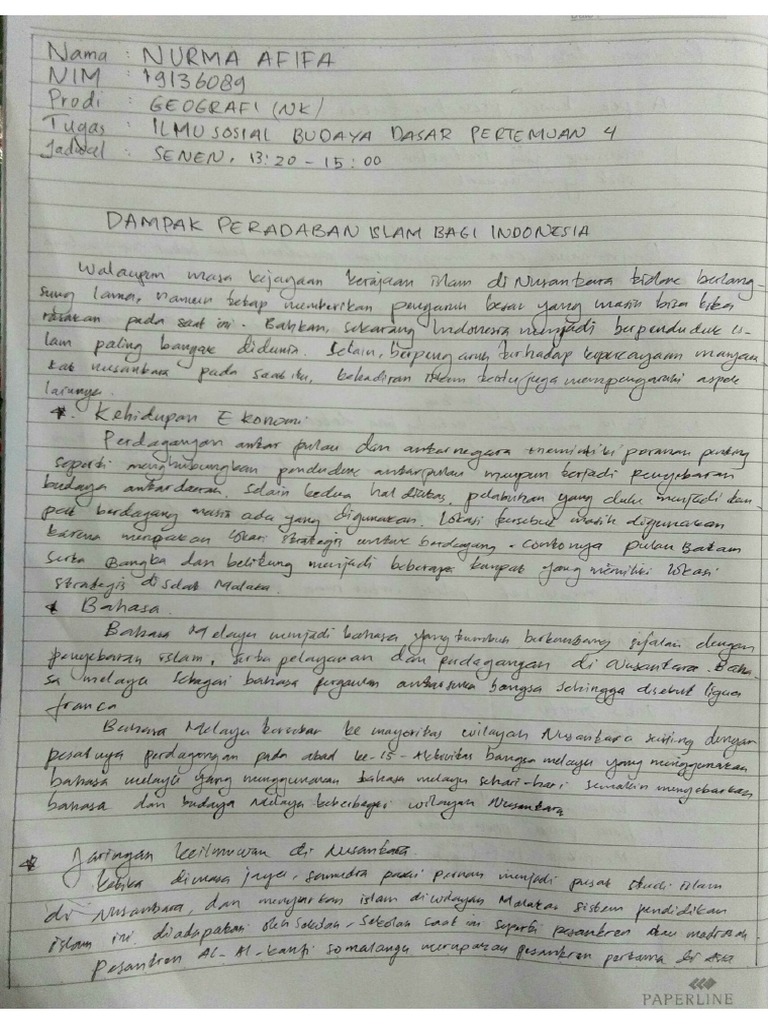 Nama : NURMA AFIFA
NIM : 19136089
Prodi : GEOGRAFI (NK)
Tugas : ILMU SOSIAL BUDAYA DASAR PERTEMUAN 4
Jadwal : SENEN, 13:20 - 15:00
DAMPAK PERADABAN ISLAM BAGI INDONESIA
Walaupun masa kejayaan kerajaan islam di Nusantara tidak berlang-
sung lama, namun tetap memberikan pengaruh besar yang masih bisa kita
rasakan pada saat ini. Bahkan, sekarang Indonesia menjadi berpenduduk is-
lam paling banyak didunia. Selain, berpengaruh terhadap kepercayaan masyara
kat nusantara pada saat itu, kehadiran islam juga mempengaruhi aspek
lainnya.
*. Kehidupan Ekonomi
Perdagangan antar pulau dan antarnegara memiliki peranan penting
seperti menghubungkan penduduk antarpulau maupun terjadi penyebaran
budaya antardaerah. Selain kedua hal diatas, pelabuhan yang dulu menjadi tem-
pat berdagang masih ada yang digunakan. Lokasi tersebut masih digunakan
karena merupakan lokasi strategis untuk berdagang. Contonya pulau Batam
serta Bangka dan belitung menjadi beberapa tempat yang memiliki lokasi
strategis di Selat Malaka.
* Bahasa.
Bahasa Melayu menjadi bahasa yang tumbuh berkembang sejalan dengan
penyebaran islam, serta pelayaran dan perdagangan di Nusantara. Baha-
sa melayu sebagai bahasa pergaulan antarsuku bangsa sehingga disebut
franca
Bahasa Melayu tersebar ke mayoritas wilayah Nusantara seiring dengan
pesatnya perdagangan pada abad ke-15. Aktivitas bangsa melayu yang menggunakan
bahasa melayu yang menggunakan bahasa melayu sehari-hari semakin menyebarkan
bahasa dan budaya Melayu keberbagai wilayah Nusantara
* Jaringan keilmuwan di Nusantara.
Ketika dimasa jaya, samudra pasai pernah menjadi pusat studi islam
di Nusantara, dan menyiarkan islam diwilayah Malaka. sistem pendidikan
islam ini diadaptasi oleh sekolah-sekolah saat ini seperti pesantren atau madrasah.
Pesantren Al-Al-kahfi somalangu merupakan pesantren pertama di Asia
PAPERLINE